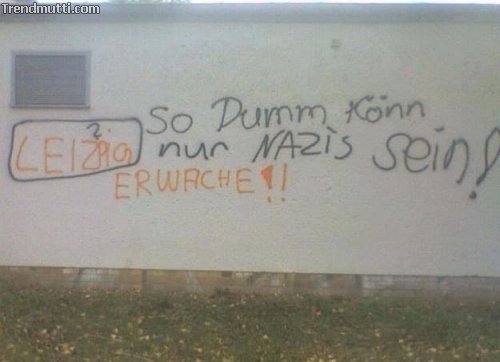 Trendmutti.com
?
LEIZPIG
ERWACHE!!
So Dumm Könn
nur NAZiS Sein!